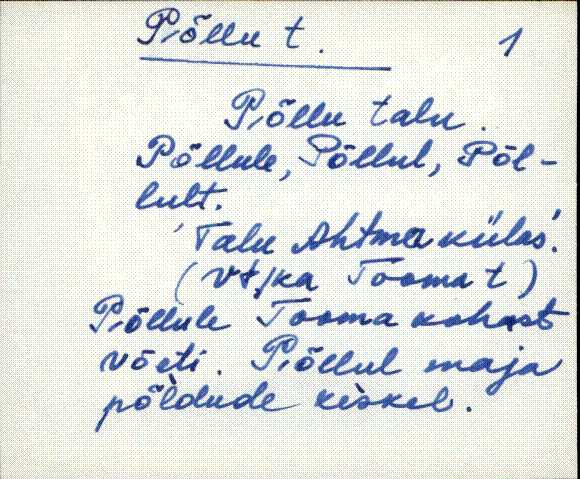 Põllu t. 1
Põllu talu.
Põllule, Põllul, Põl-
lult.
'Talu Ahtma külas'.
(vt. ka Tooma t)
Põllule Tooma kohast
võeti. Põllul maja
põldude keskel.